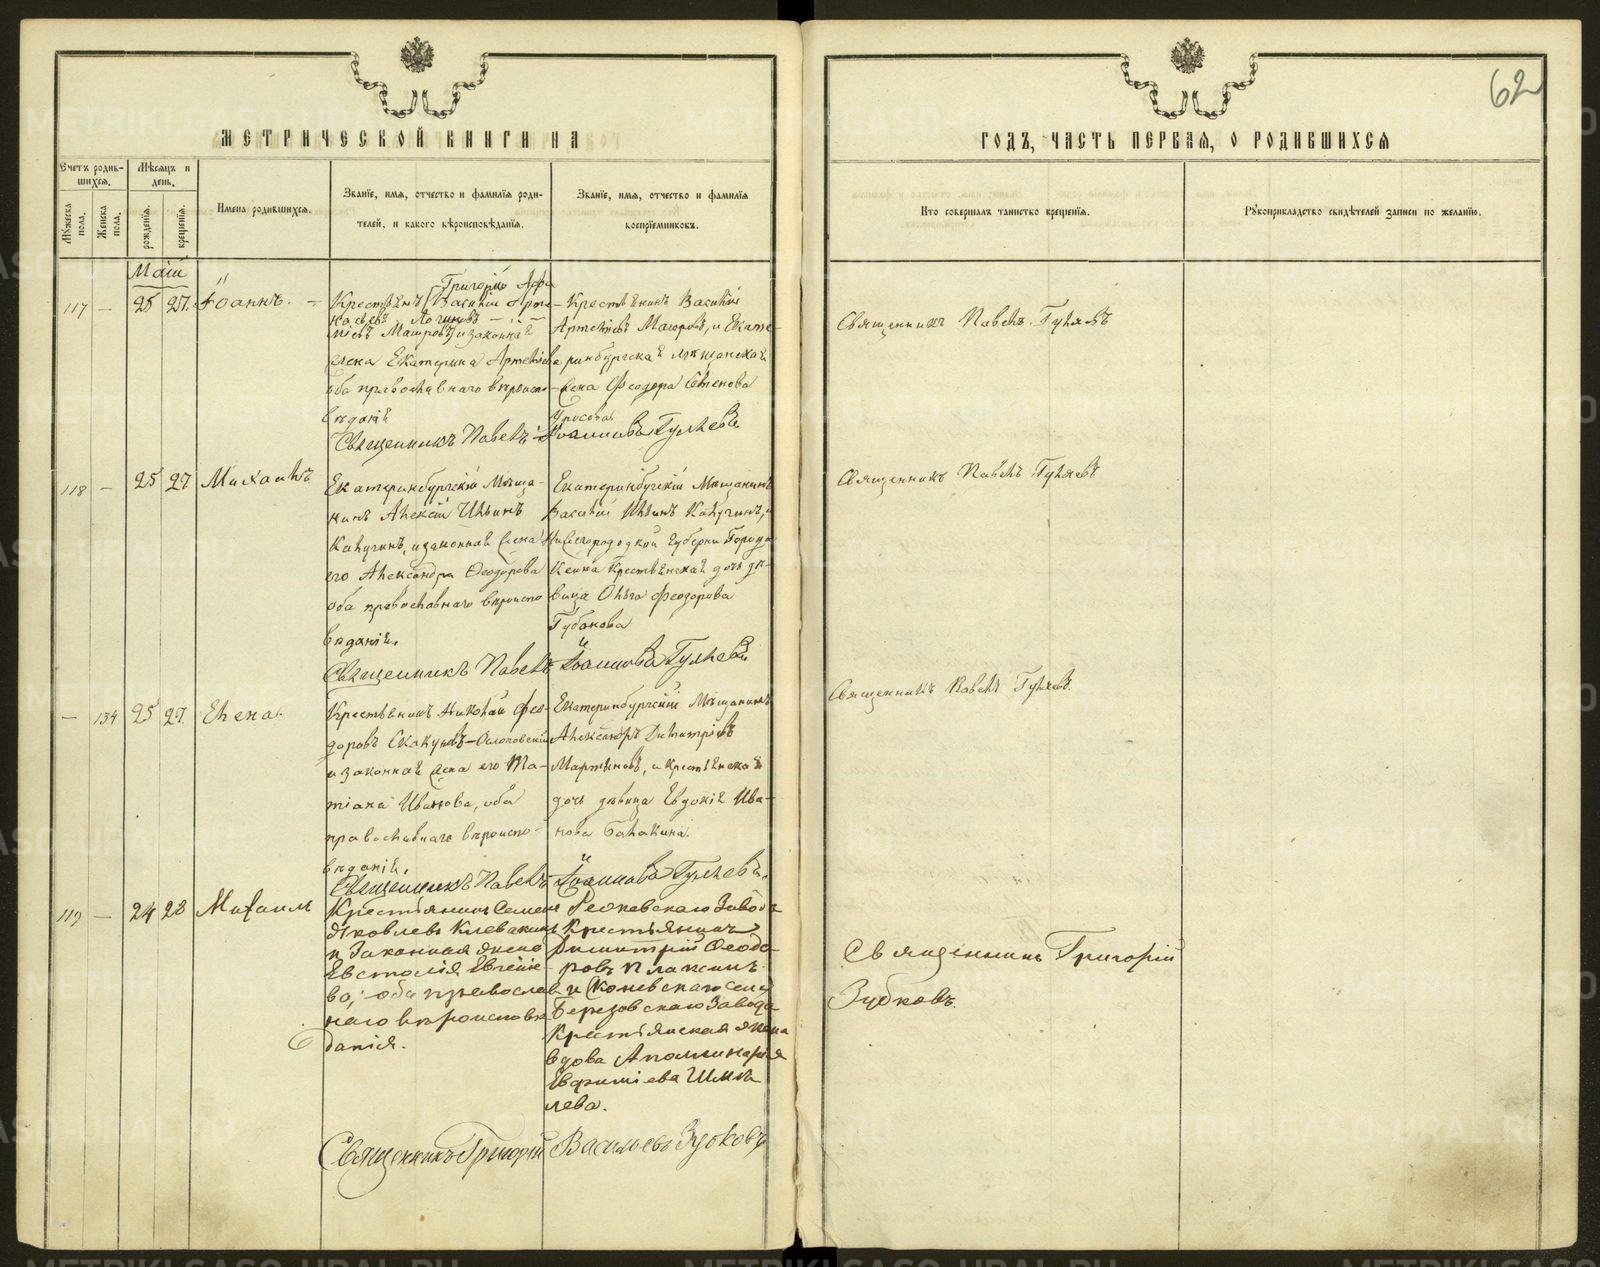 62
МЕТРИЧЕСКОЙ КНИГИ НА
ГОДЪ, ЧАСТЬ ПЕРВАЯ, О РОДИВШИХСЯ
Счетъ родив-
шихся.
Мѣсяцъ и
день.
Мужеска
пола.
Женска
пола.
рожденія.
крещенія.
Имена родившихся.
Званіе, имя, отчество и фамилія роди-
телей, и какого вѣроисповѣданія.
Званіе, имя, отчество и фамилія
воспріемниковъ.
Кто совершалъ таинство крещенія.
Рукоприкладство свидѣтелей записи по желанію.
Маій
117 — 25 27. Іоаннъ.
Григорій Афа
Крестьянинъ Василій Арте-
насьевъ Логиновъ
міевъ и законная
жена Екатерина Артемьева
оба православнаго вѣроиспо-
вѣданія
Крестьянинъ Василій
Артеміевъ и Екате-
ринбургская мѣщанская
жена Феодора Семенова
Священникъ Павелъ Іоанновъ Гуляевъ
Священникъ Павелъ Гуляевъ
118 — 25 27 Михаилъ
Екатеринбургскій Мѣща-
нинъ Алексій Ильинъ
Калугинъ, и законная жена
его Александра Феодорова
оба православнаго вѣроиспо
вѣданія.
Екатеринбургскій Мѣщанинъ
Василій Ильинъ Калугинъ, и
Нижегородской губерніи Города
крестьянская дочь дѣ-
вица Ольга Феодорова
Губанова
Священникъ Павелъ Іоанновъ Гуляевъ
Священникъ Павелъ Гуляевъ
— 134 25 27. Елена.
Крестьянинъ Николай Фео-
доровъ
и законная жена его Та-
тіана Иванова, оба
православнаго вѣроиспо-
вѣданія.
Екатеринбургскій Мѣщанинъ
Александръ Димитріевъ
Мартыновъ, и крестьянская
дочь дѣвица Евдокія Ива-
нова Балакина.
Священникъ Павелъ Іоанновъ Гуляевъ.
Священникъ Павелъ Гуляевъ.
119 — 24 28 Михаилъ
Крестьянинъ Семенъ
Яковлевъ Клевакинъ
и Законная жена
Евстолія Евгеніе-
ва, оба православ
наго вѣроисповѣ
данія.
Режевскаго Завода
Крестьянинъ
Димитрій Феодо-
ровъ
и Коневскаго села
Березовскаго Завода
Крестьянская жена
вдова Аполлинарія
Евфиміева Шмы
лева.
Священникъ Григорій Васильевъ Зубковъ
Священникъ Григорій
Зубковъ
METRIKI.GASO-URAL.RU